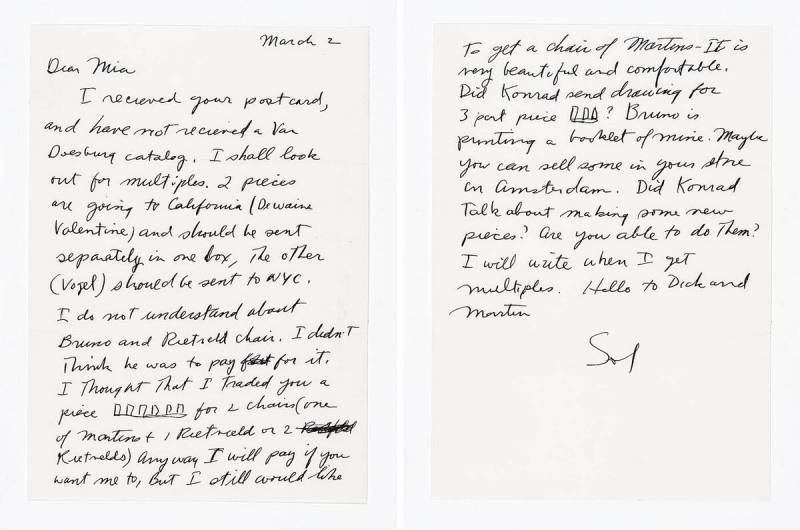 March 2
Dear Mia
I recieved your postcard,
and have not recieved a Van
Doesburg catalog. I shall look
out for multiples. 2 pieces
are going to California (Dewaine
Valentine) and should be sent
separately in one box, The other
(Vogel) should be sent to NYC.
I do not understand about
Bruno and Rietveld chair. I didn't
Think he was to pay for it.
I Thought That I Traded you a
piece for 2 chairs (one
of Martins + 1 Rietveld or 2
Rietvelds) Anyway I will pay if you
want me to, But I still would like
To get a chair of Martins - It is
very beautiful and comfortable.
Did Konrad send drawing for
3 part piece ? Bruno is
printing a booklet of mine. Maybe
you can sell some in your store
in Amsterdam. Did Konrad
Talk about making some new
pieces? Are you able to do Them?
I will write when I get
multiples. Hello to Dick and
Martin
Sol